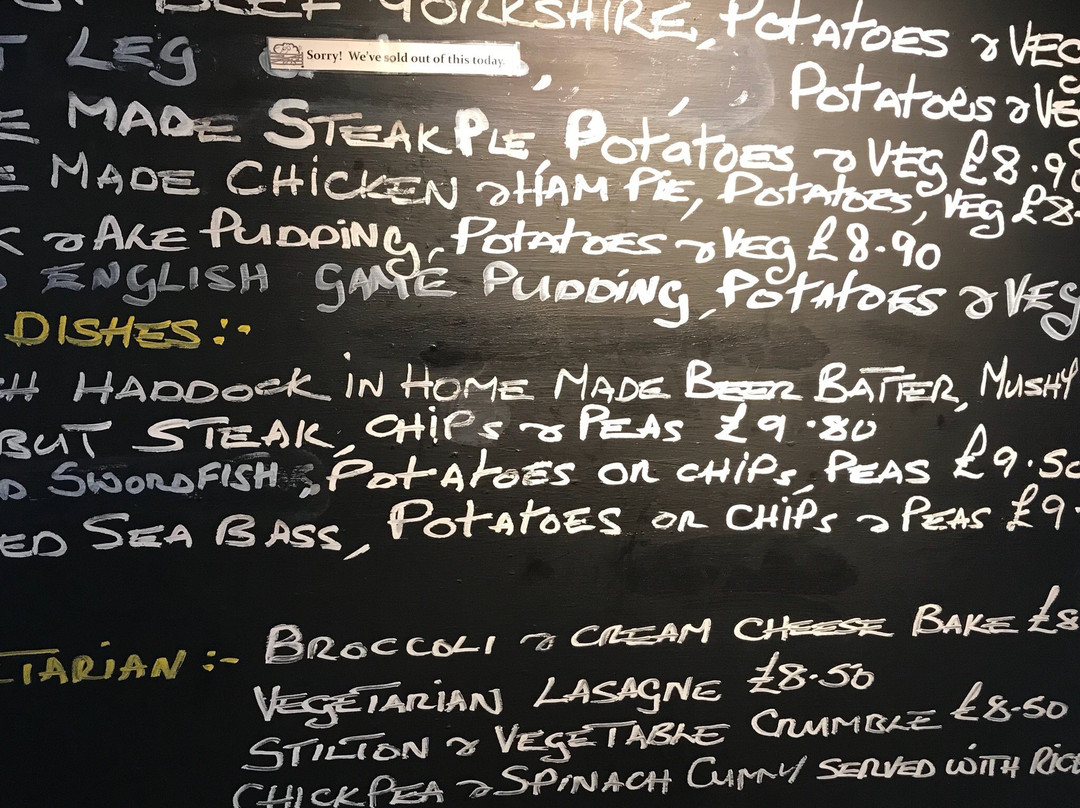 BEEF YORKSHIRE, POTATOES & VEG
LEG
Sorry! We've sold out of this today.
POTATOES & VE
E MADE STEAK PIE, POTATOES & VEG £8.90
E MADE CHICKEN & HAM PIE, POTATOES, VEG £8.
K & ALE PUDDING, POTATOES & VEG £8.90
ENGLISH GAME PUDDING, POTATOES & VEG
DISHES:-
SH HADDOCK IN HOME MADE BEER BATTER, MUSHY
BUT STEAK, CHIPS & PEAS £9.80
D SWORDFISH, POTATOES OR CHIPS, PEAS £9.50
ED SEA BASS, POTATOES OR CHIPS & PEAS £9.
ETARIAN:- BROCCOLI & CREAM CHEESE BAKE £8
VEGETARIAN LASAGNE £8.50
STILTON & VEGETABLE CRUMBLE £8.50
CHICKPEA & SPINACH CURRY SERVED WITH RICE